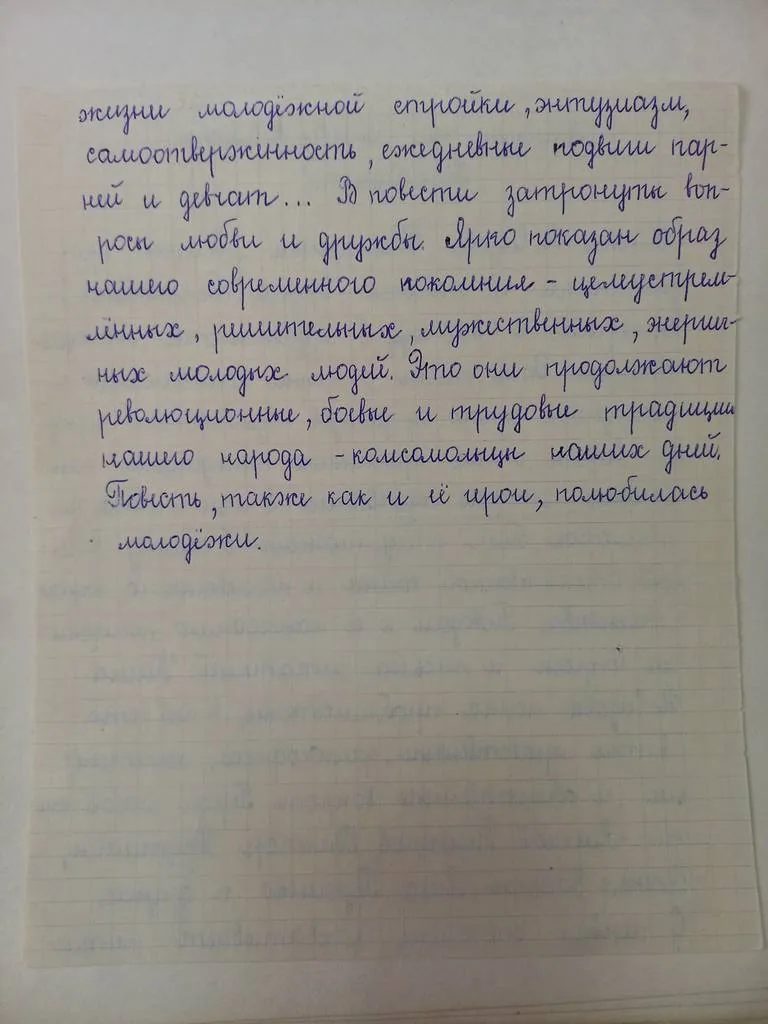 жизни молодёжной стройки, энтузиазм,
самоотверженность, ежедневные подвиги пар-
ней и девчат... В повести затронуты воп-
росы любви и дружбы. Ярко показан образ
нашего современного поколения - целеустрем-
лённых, решительных, мужественных, энергич-
ных молодых людей. Это они продолжают
революционные, боевые и трудовые традиции
нашего народа - комсомольцы наших дней.
Повесть, также как и её герои, полюбилась
молодёжи.